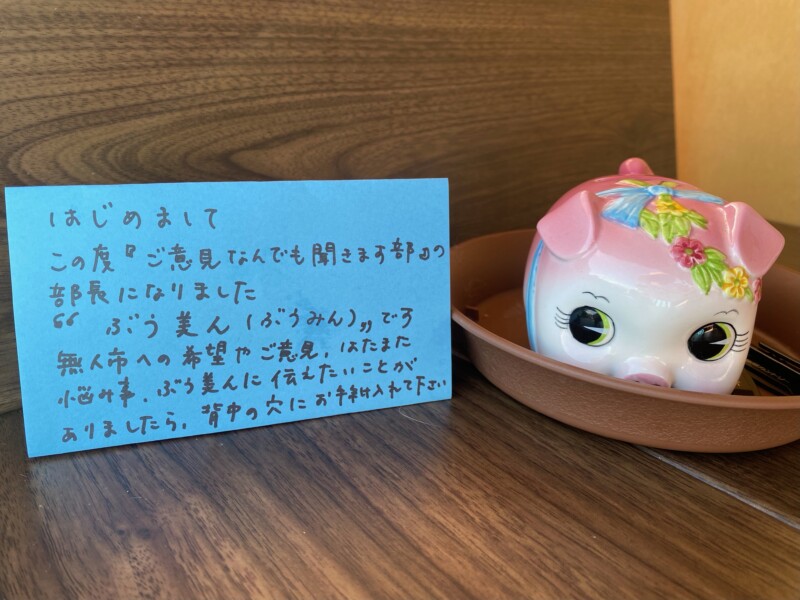 はじめまして
この度『ご意見なんでも聞きます部』の
部長になりました
“ ぶう美ん(ぶうみん)„です
無人市への希望やご意見、はたまた
悩み事、ぶう美んに伝えたいことが
ありましたら、背中の穴にお手紙入れて下さい